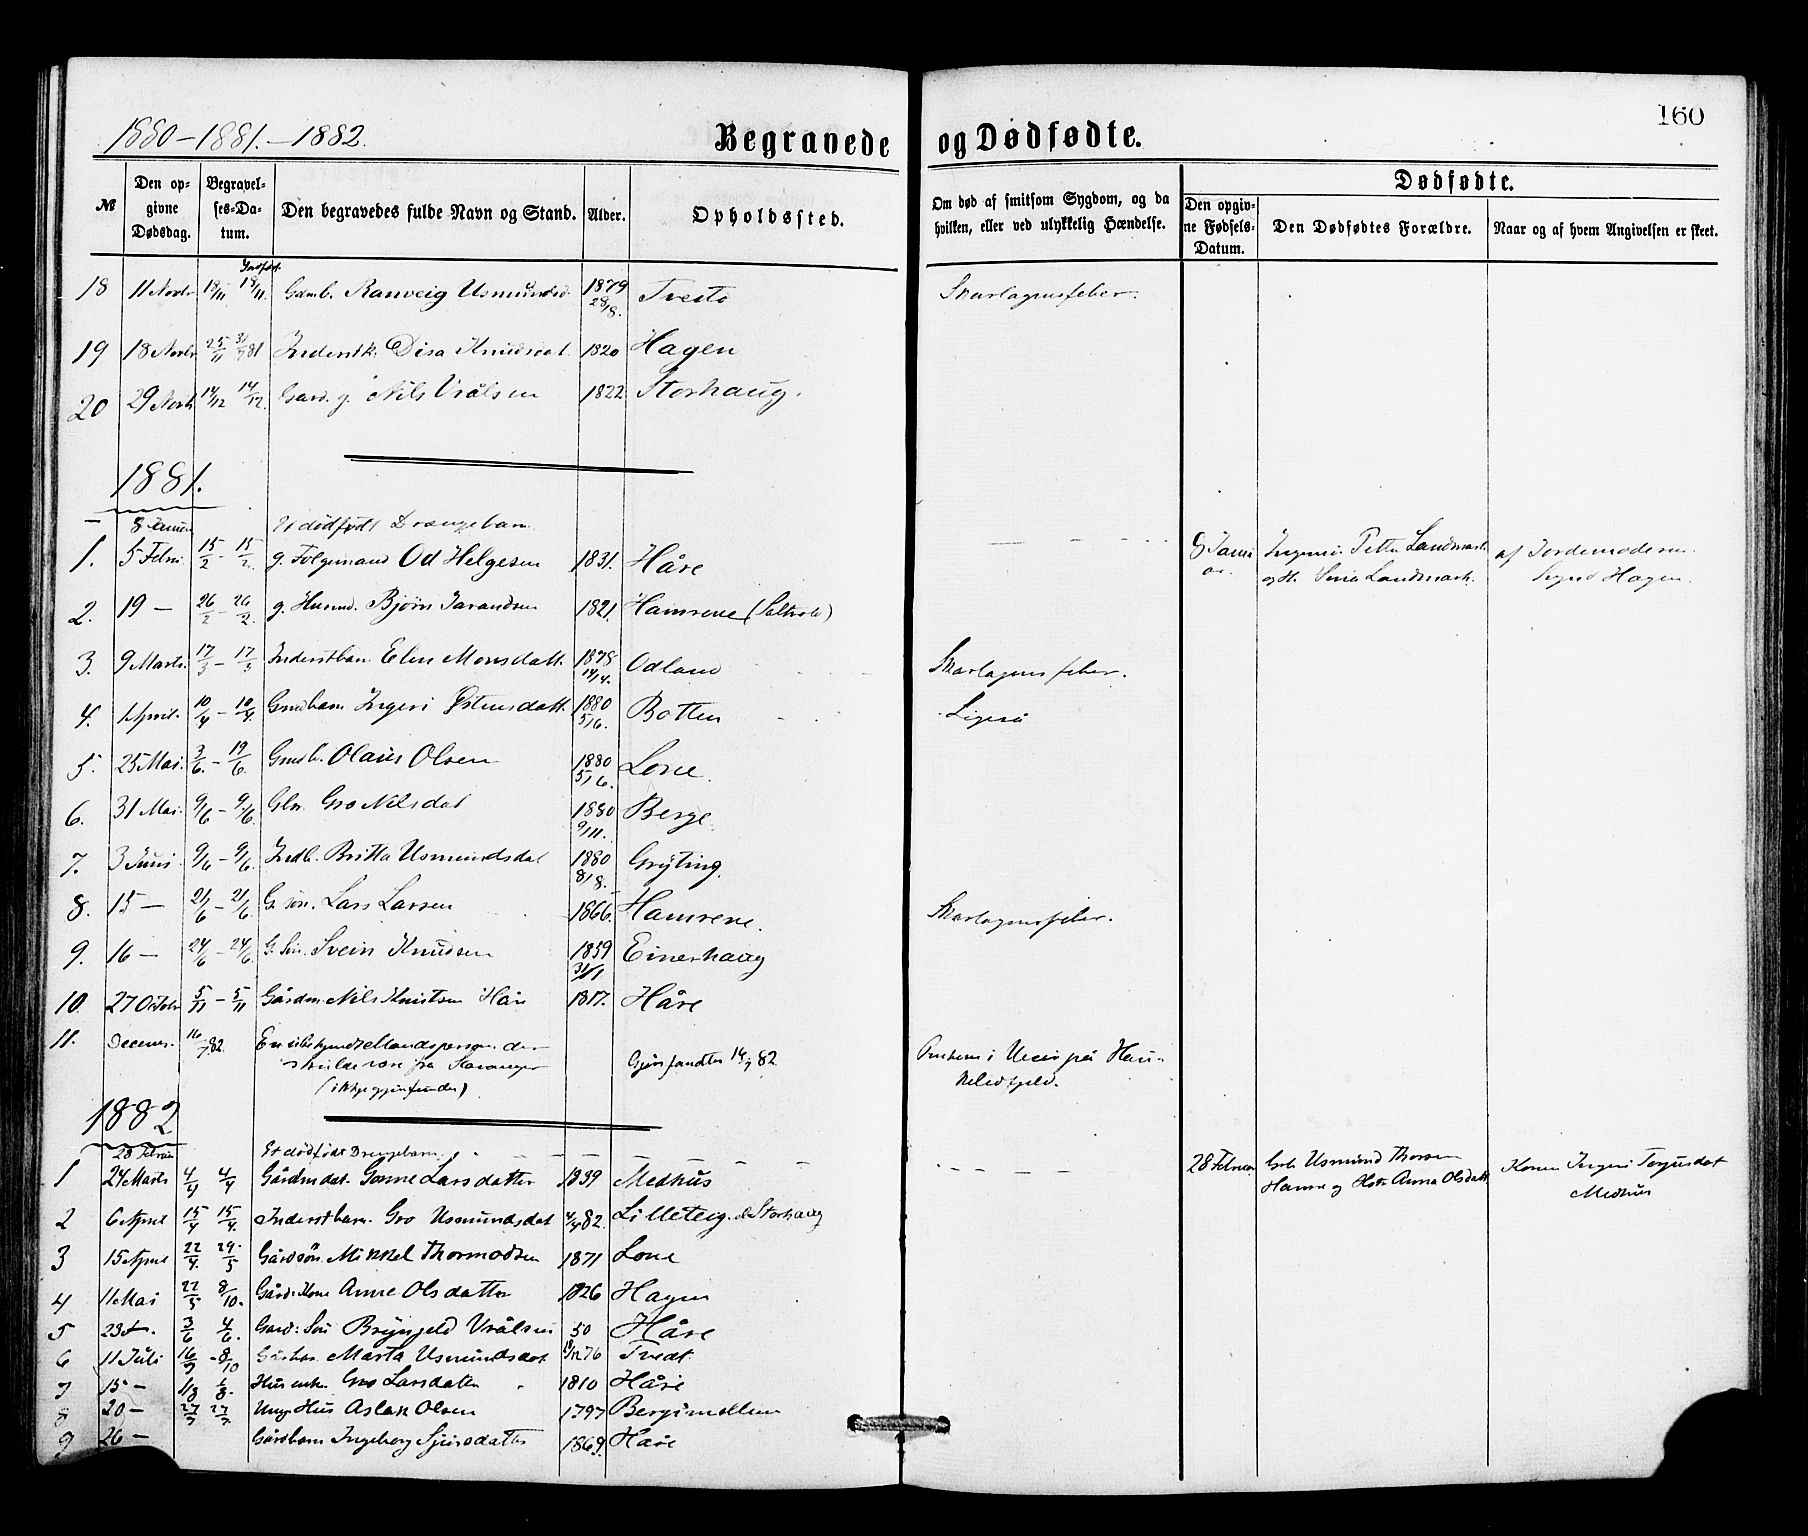 160
1880–1881.–1882.
Begravede og Dødfødte.
№
Den opgivne Dødsdag.
Begravelses-Datum.
Den begravedes fulde Navn og Stand.
Alder.
Opholdssted.
Om død af smitsom Sygdom, og da hvilken, eller ved ulykkelig Hændelse.
Dødfødte.
Den opgivne Fødsels-Datum.
Den Dødfødtes Forældre.
Naar og af hvem Angivelsen er skeet.
18 11 Novbr 18/11 18/11. Gdmb. Ranveig Usmundsd. 1879 28/8. Tvesto Skarlagensfeber.
19 18 Novbr 25/11 81 Inderstk. Disa Knudsdat. 1820 Hagen
20 29 Novb 14/12 14/12. Gard. g. Nils Vrålsen 1822 Storhaug.
1881.
– 8 Januar Et dødfødt Drengebarn. – – – 8 Januar. Ingeniør Petter Landmark og H. Sina Landmark. af Jordemoderen Sigrid Hagen.
1. 5 Febru 15/2 – 15/2. g. Følgemand Od Helgesen 1831. Håre
2. 19 – 26/2 – 26/2. g. Husmd. Bjørn Jarandsen 1821. Hamrene (Saltvold)
3. 9 Marts. 17/3 – 17/3 Inderstbarn. Elen Monsdatt. 1878 14/4. Odland Skarlagensfeber.
4. 1 April. 10/4 – 10/4. Gmdbarn Ingeri Østensdatt. 1880 5/6. Botten Ligeså
5. 25 Mai. 3/6. – 19/6. Gmdb. Olaus Olsen 1880 5/6. Lone.
6. 31 Mai. 9/6 – 9/6. Gbn. Gro Nilsdat 1880 9/11. Berge.
7. 3 Juni 9/6 – 9/6. Indb. Britta Usmundsdat 1880 8/8. Grÿting.
8. 15 – 21/6 – 21/6. G. søn. Lars Larsen 1866. Hamrene. Skarlagensfeber.
9. 16 – 24/6 – 24/6. G. Søn. Svein Knudsen 1859 31/1 Einerhaug
10. 27 Octobr 5/11 – 5/11 Gårdm. Nils Knutsen Håre 1817. Håre
11. Decemr. 16/7 82. En ubekjendt Mandsperson der skulde være fra Stavanger (ikke gjenfunden) Gjenfandtes 14/7 82 Omkom i Uveir på Haukelidfjeld.
1882
28 Februar Et dødfødt Drengebarn. – – – 28 Februar Grb. Usmund Thorsen Hamre og Hstr. Anna Olsdatt. Konen Ingeri Torgusdat Medhus
1 24 Marts 4/4 4/4 Gårdmdat. Gonne Larsdatter 1839 Medhus
2 6 April 15/4 15/4. Inderstbarn. Gro Usmundsdat 4/4 82. Lilleteig. Storhaug
3 15 April 22/4. 29/5 Gårdsøn Mikkel Thormodsen 1871 Lone
4 11 Mai 22/5 8/10. Gårds.Kone Anne Olsdatter 1826 Hagen
5 23 – 3/6 4/6. Gard: Søn Brynjeld Vrålsen 50 Håre
6 11 Juli 16/7 – 8/10 Gårbar. Marta Usmundsdat 18/12 76 Tvedt
7 15 – 1/8 1/8. Husenk. Gro Larsdatter 1810 Håre
8 20 – 27/7 27/7 Ung. Hus Aslak Olsen 1797 Bergsmellem
9 26 – Gårdbarn Ingeborg Sjursdatter 1869. Håre